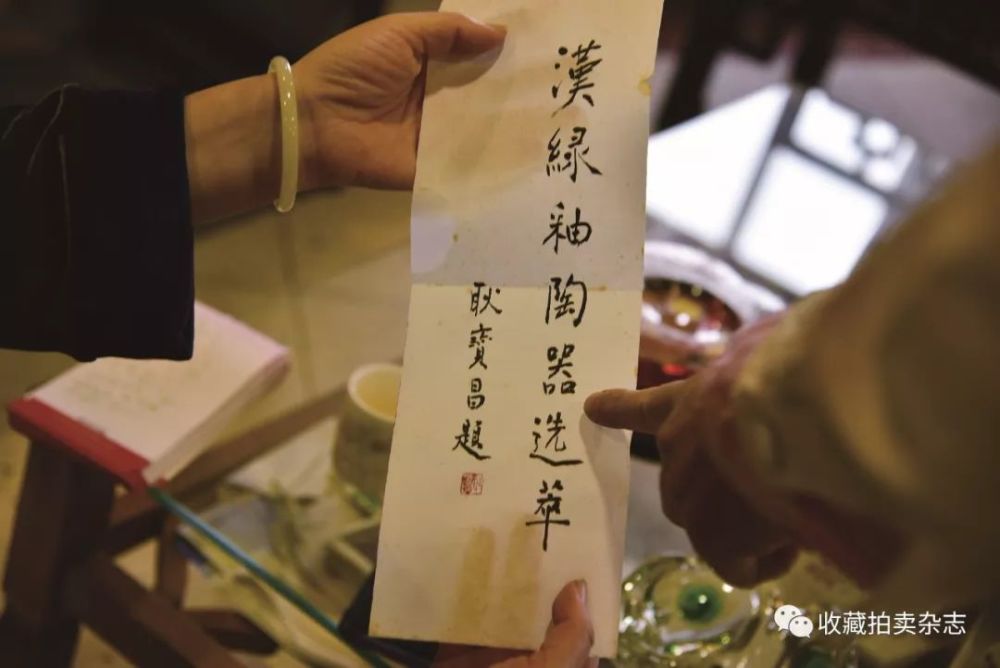 漢綠釉陶器选萃
耿寶昌題
收藏拍卖杂志